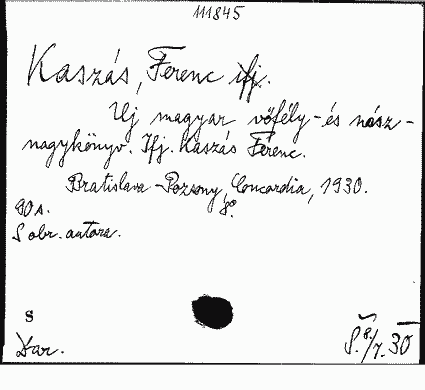 111845
Kaszás, Ferenc ifj.
Uj magyar vőfély- és nász-
nagykönyv. Ifj. Kaszás Ferenc.
Bratislava - Pozsony, Concordia, 1930.
90 s. 8°.
S obr. autora.
S
Dar. Š. 8/7. 30